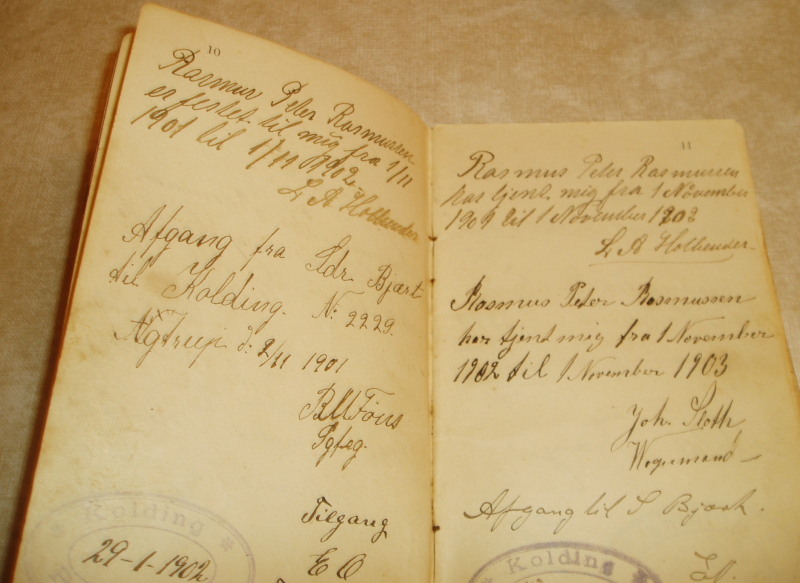 10
Rasmus Peter Rasmussen
er festet til mig fra 1/11
1901 til 1/11 1902
L A Hollænder
Afgang fra Sdr. Bjært
til Kolding. N: 2229.
Agtrup d: 2/11 1901
Tilgang
Kolding
29-1-1902
11
Rasmus Peter Rasmussen
har tjent mig fra 1 November
til 1 November
L A Hollænder
Rasmus Peter Rasmussen
har tjent mig fra 1 November
1902 til 1 November 1903
Joh. Sloth
Afgang til S Bjært.
Kolding